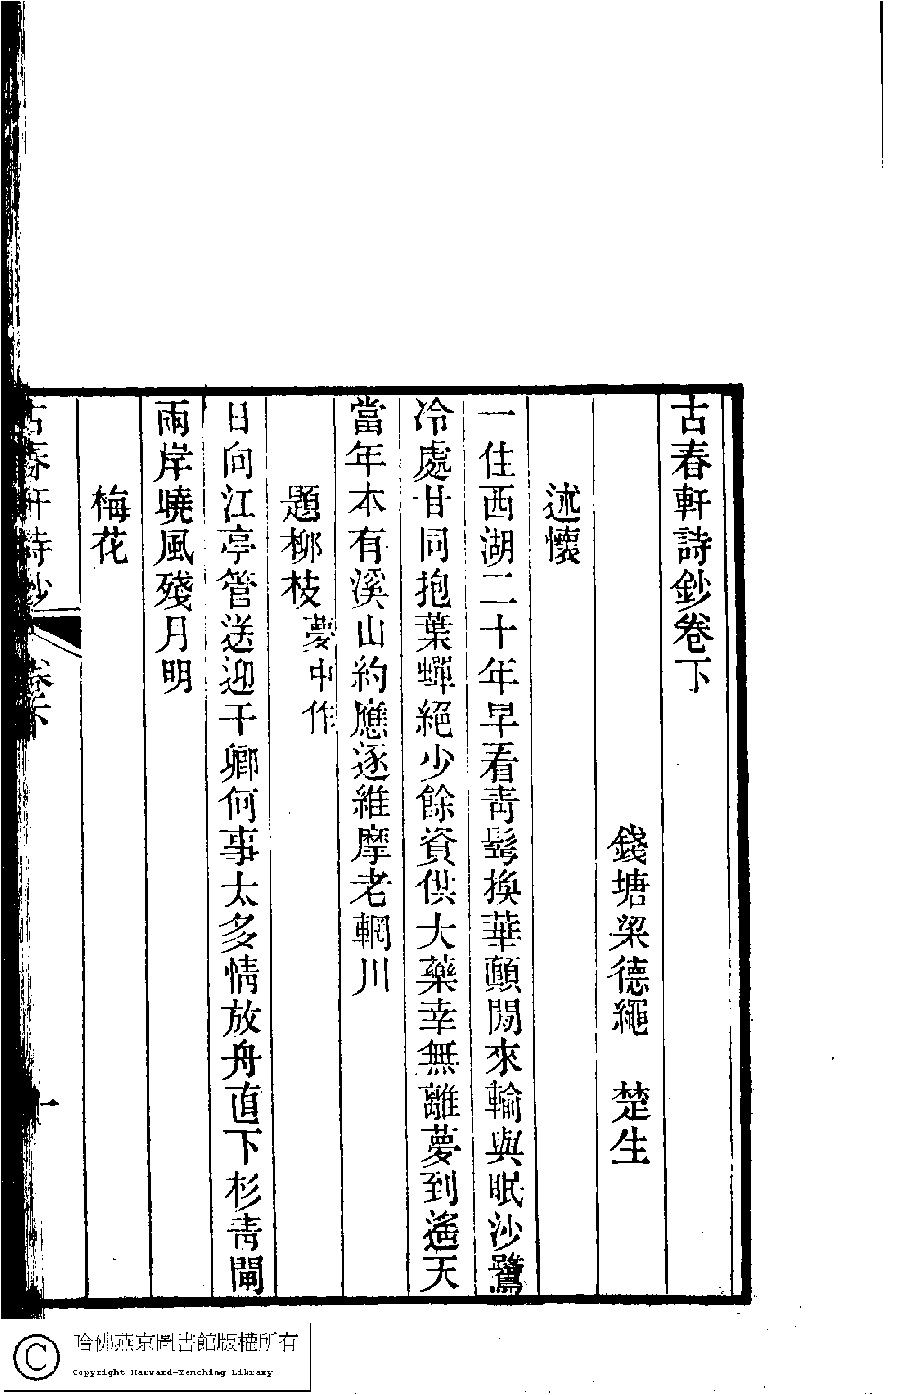 古春軒詩鈔卷下
錢塘梁德繩　楚生
述懷
一住西湖二十年早看靑髩換華顚閒來輸與眠沙鷺
冷處甘同抱葉蟬絕少餘資供大藥幸無離夢到遙天
當年本有溪山約應逐維摩老輞川
題柳枝夢中作
日向江亭管送迎干卿何事太多情放舟直下杉靑閘
兩岸曉風殘月明
梅花
古春軒詩鈔 卷下 一
哈佛燕京圖書館版權所有
Copyright Harvard-Yenching Library